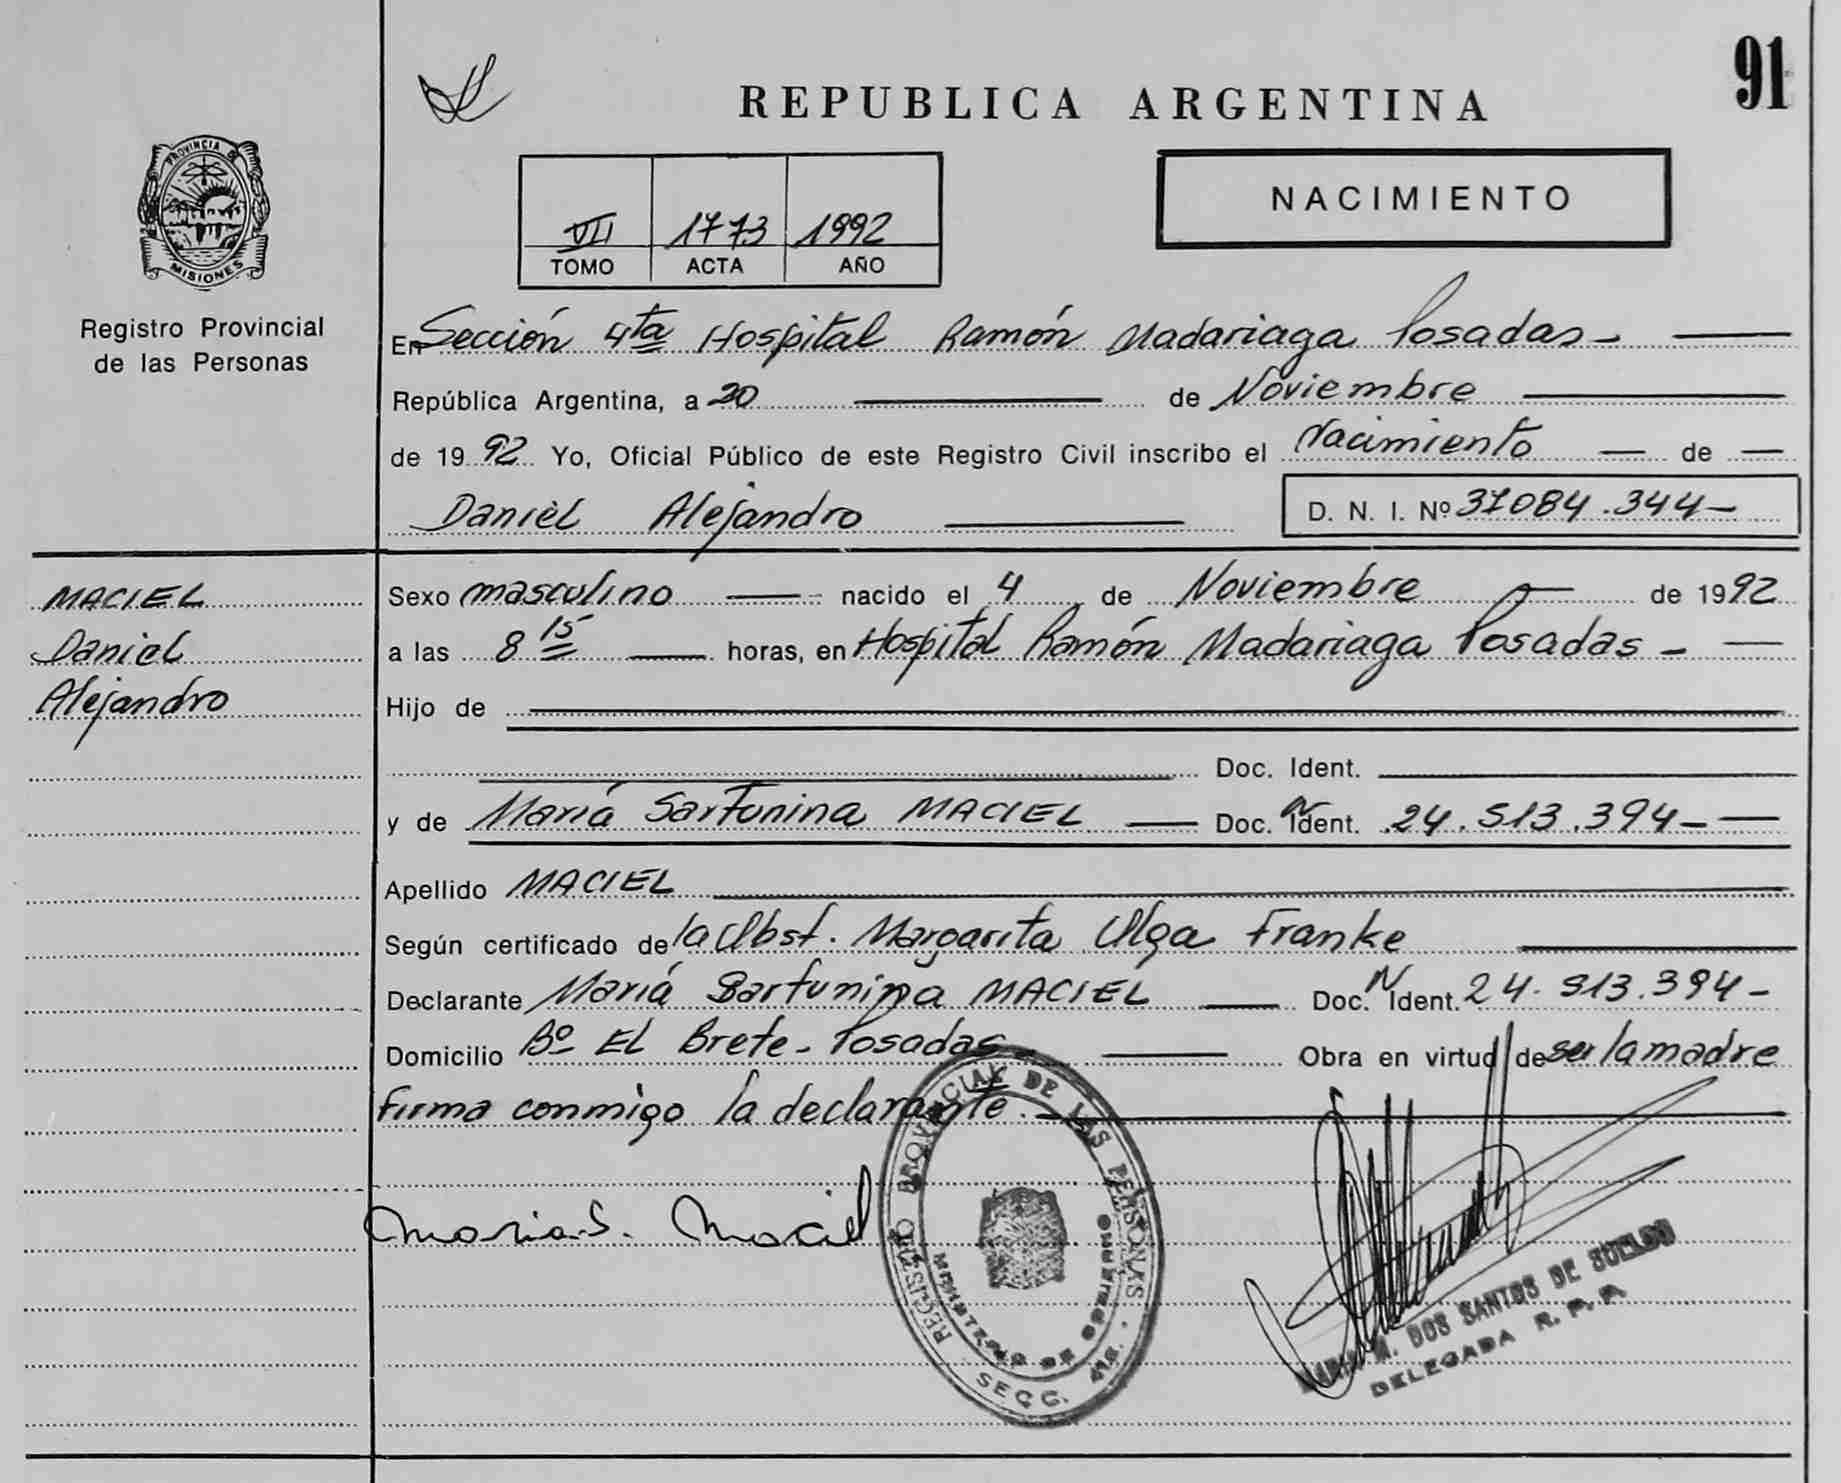 91
REPUBLICA ARGENTINA
PROVINCIA DE
MISIONES
Registro Provincial
de las Personas
VII 1773 1992
TOMO ACTA AÑO
NACIMIENTO
En Sección 4ta Hospital Ramón Madariaga Posadas
República Argentina, a 20 de Noviembre
de 1992 Yo, Oficial Público de este Registro Civil inscribo el Nacimiento de
Daniel Alejandro D. N. I. Nº 37084.344
MACIEL
Daniel
Alejandro
Sexo masculino nacido el 4 de Noviembre de 1992
a las 8 15 horas, en Hospital Ramón Madariaga Posadas
Hijo de
Doc. Ident.
y de María Sarturnina MACIEL Doc. N Ident. 24.513.394
Apellido MACIEL
Según certificado de la Obst. Margarita Olga Franke
Declarante María Sarturnina MACIEL Doc. N Ident. 24.513.394
Domicilio Bº El Brete - Posadas Obra en virtud de ser la madre
firma conmigo la declarante.
Maria S. Maciel
REGISTRO PROVINCIAL DE LAS PERSONAS
MINISTERIO DE GOBIERNO
SECC. 4ta.
M. DOS SANTOS DE SUELDO
DELEGADA R. P. P.